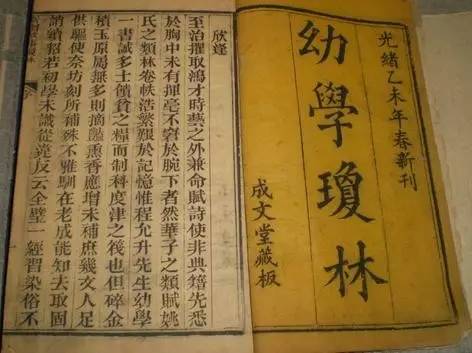 光緒乙未年 春新刊
幼學瓊林
成文堂藏板
欣逢
至治擢取鴻才時藝之外兼命賦詩使非典籍先悉
於胸中未有揮毫不窘於腕下者然華子之類賦姚
氏之類林卷帙浩繁艱於記憶惟程允升先生幼學
一書誠多士饋貧之糧而制科度津之筏也但碎金
積玉原屬無多則摘豔熏香應增未補庶幾文人足
供驅使奈坊刻所補殊不雅馴在老成能知去取固
誚續貂若初學未識從違反云全璧一經習染俗不